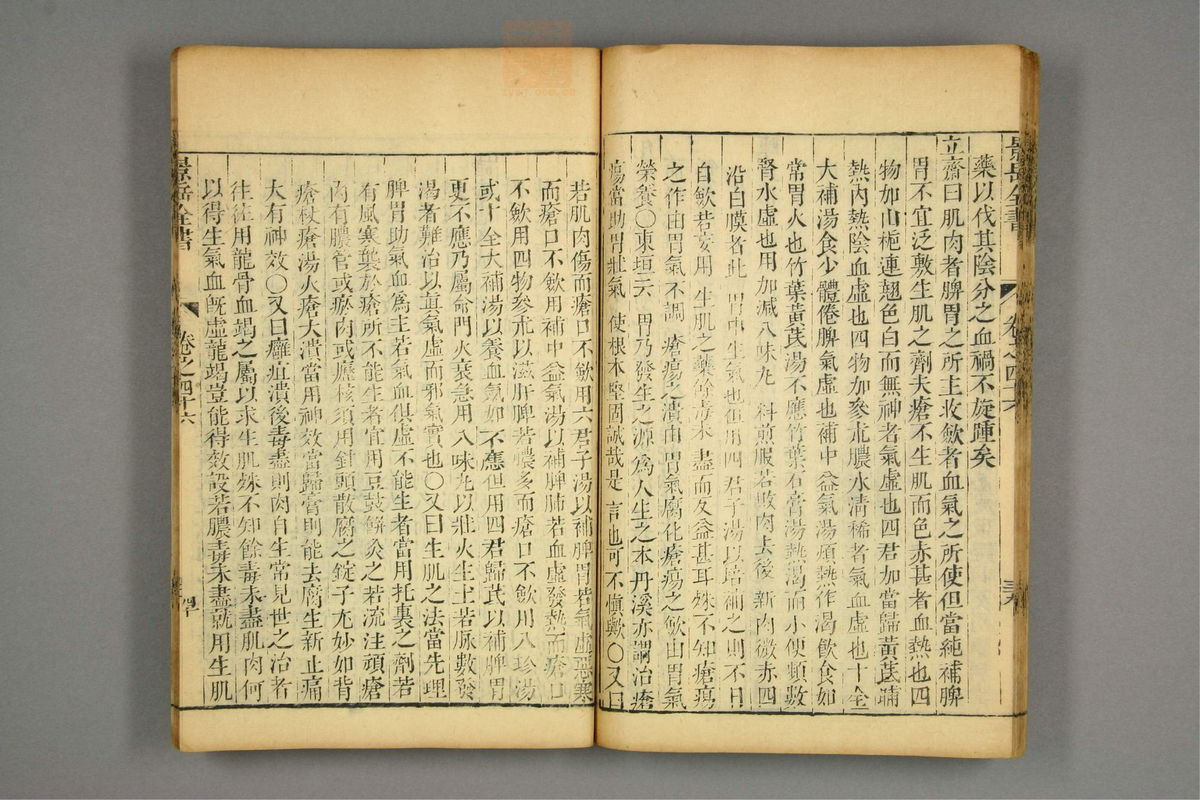 景岳全書 卷之四十六
藥以伐其陰分之血禍不旋踵矣
立齋曰肌肉者脾胃之所主收斂者血氣之所使但當純補脾
胃不宜泛敷生肌之劑夫瘡不生肌而色赤甚者血熱也四
物加山梔連翹色白而無神者氣虛也四君加當歸黃芪晡
熱內熱陰血虛也四物加參朮膿水清稀者氣血虛也十全
大補湯食少體倦脾氣虛也補中益氣湯煩熱作渴飲食如
常胃火也竹葉黃芪湯不應竹葉石膏湯熱渴而小便頻數
腎水虛也用加減八味丸料煎服若敗肉去後新肉微赤四
沿白膜者此胃中生氣也但用四君子湯以培補之則不日
自斂若妄用生肌之藥餘毒未盡而反益甚耳殊不知瘡瘍
之作由胃氣不調瘡瘍之潰由胃氣腐化瘡瘍之斂由胃氣
榮養○東垣云胃乃發生之源為人生之本丹溪亦謂治瘡
瘍當助胃壯氣使根本堅固誠哉是言也可不慎歟○又曰
若肌肉傷而瘡口不斂用六君子湯以補脾胃若氣虛惡寒
而瘡口不斂用補中益氣湯以補脾肺若血虛發熱而瘡口
不斂用四物參朮以滋肝脾若膿多而瘡口不斂用八珍湯
或十全大補湯以養血氣如不應但用四君歸芪以補脾胃
更不應乃屬命門火衰急用八味丸以壯火生土若脉數發
渴者難治以真氣虛而邪氣實也○又曰生肌之法當先理
脾胃助氣血為主若氣血俱虛不能生者當用托裏之劑若
有風寒襲於瘡所不能生者宜用豆豉餅灸之若流注頑瘡
內有膿管或瘀肉或癧核須用針頭散腐之錠子尤妙如背
瘡杖瘡湯火瘡大潰當用神效當歸膏則能去腐生新止痛
大有神效○又曰癰疽潰後毒盡則肉自生常見世之治者
往往用龍骨血竭之屬以求生肌殊不知餘毒未盡肌肉何
以得生氣血旣虛龍竭豈能得效設若膿毒未盡就用生肌
景岳全書 卷之四十六